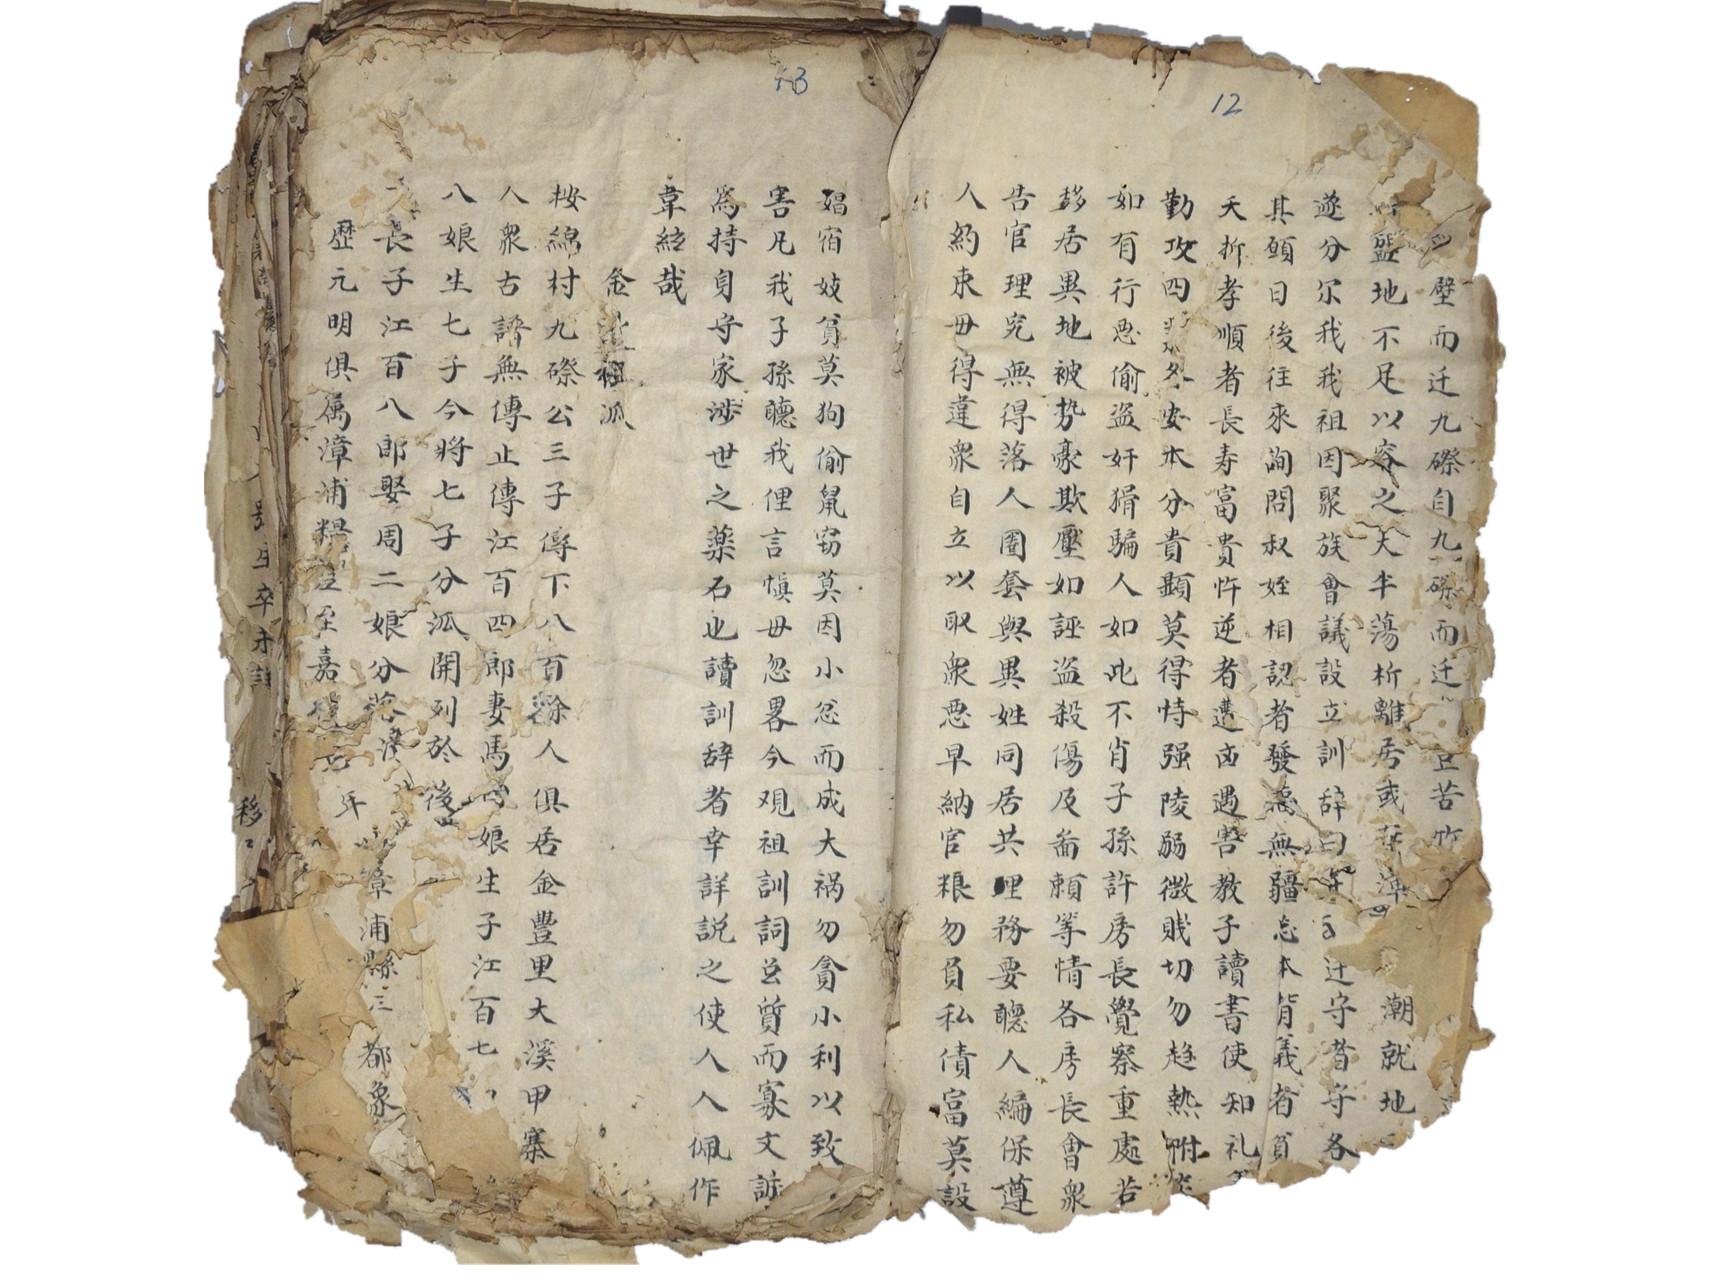 12
壁而迁九磜自九磜而迁苦竹
盤地不足以容之大半蕩析離居或潮就地
遂分尔我我祖因聚族會議設立訓辞曰迁守者守各
其頭日後往來詢問叔姪相認者發為無疆忘本背義者貧
夭折孝順者長寿富貴忤逆者遭凶遇害教子讀書使知礼
勤攻四安本分貴顯莫得恃强陵弱微賎切勿趋熱附
如有行悪偷盗奸猾騙人如此不肖子孫許房長覺察重處若
移居異地被势豪欺壓如誣盗殺傷及畨賴等情各房長會衆
告官理究無得落人圈套與異姓同居共理務要聽人編保遵
人約束毋得違衆自立以取衆悪早納官粮勿負私債富莫設
13
娼宿妓貧莫狗偷鼠窃莫因小忿而成大禍勿貪小利以致
害凡我子孫聽我俚言慎毋忽畧今观祖訓詞旨質而寡文訴
為持身守家渉世之藥石也讀訓辞者幸詳説之使人人佩作
韋絃哉
金祖派
按綿村九磜公三子傳下八百餘人俱居金豐里大溪甲寨
人衆古譜無傳止傳江百四郎妻馬娘生子江百七
八娘生七子今將七子分派開列於後
長子江百八郎娶周二娘分落漳漳浦縣三都象
歷元明俱属漳浦糧至嘉年